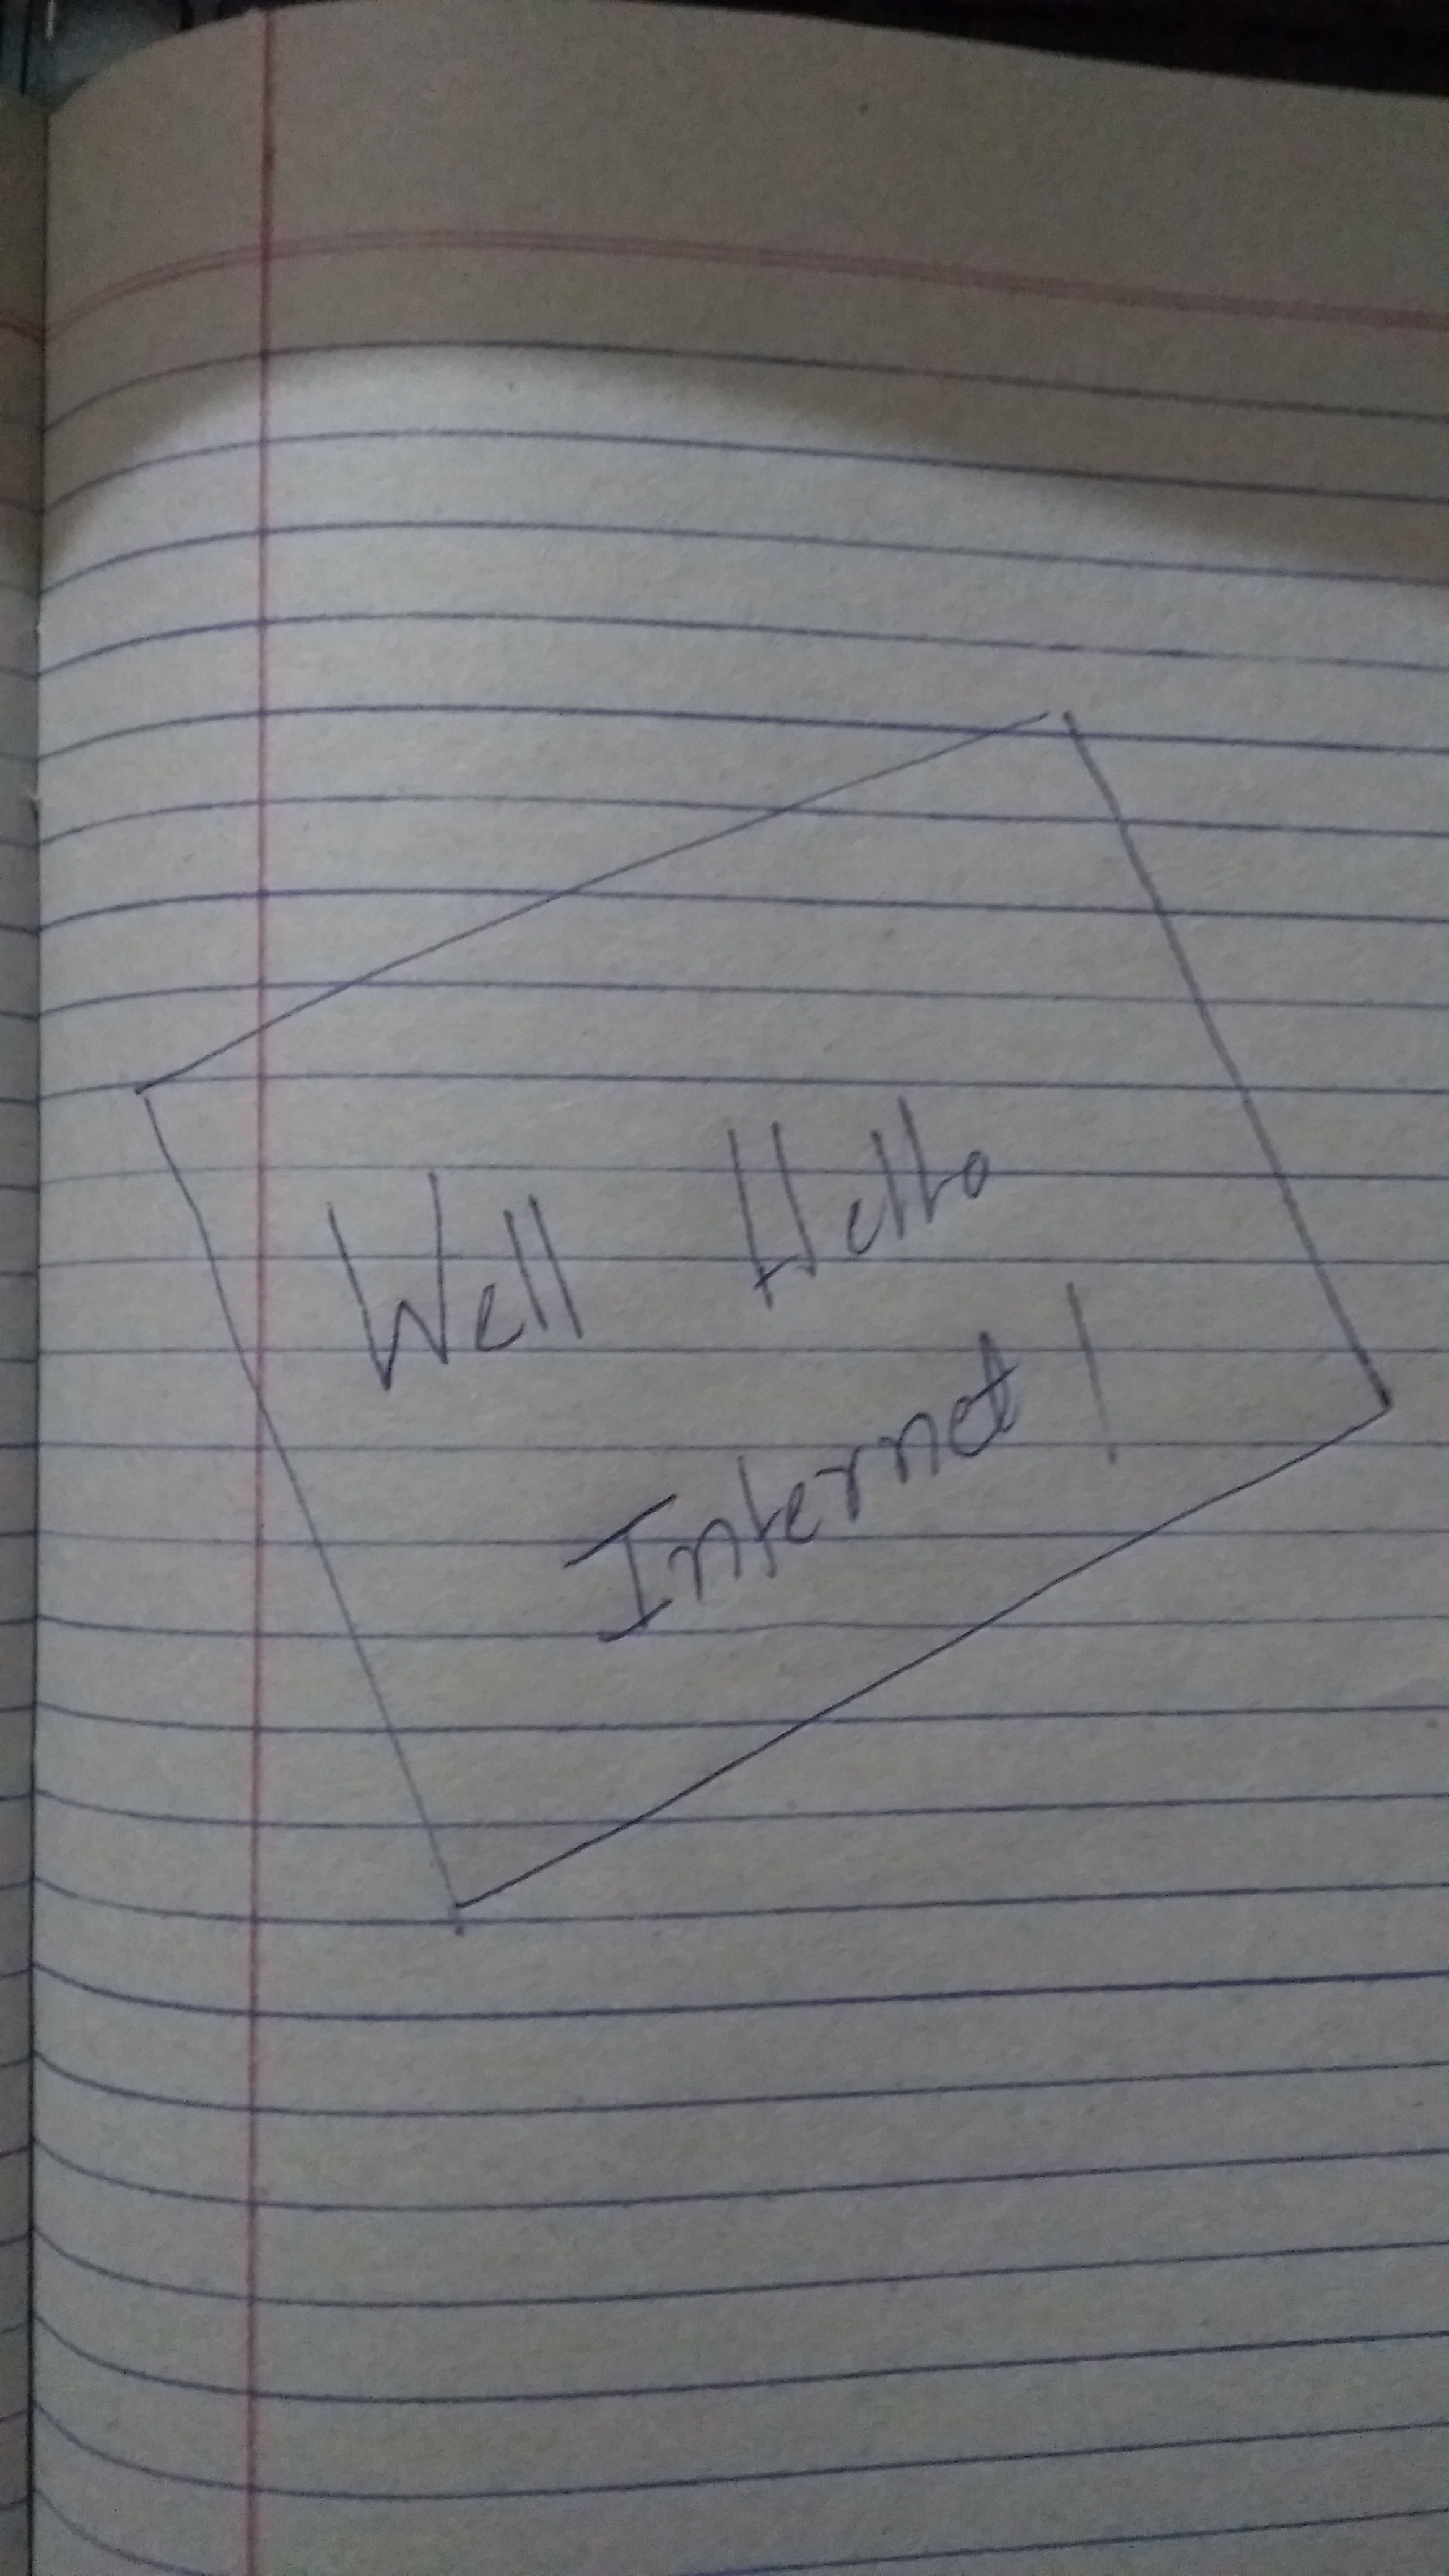 Well Hello
Internet!